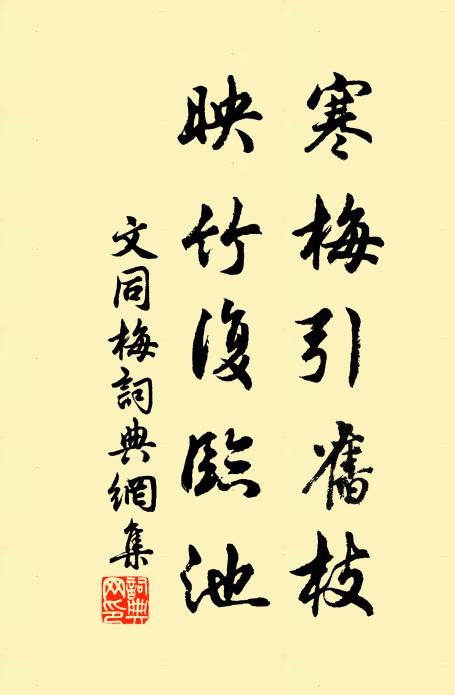 寒梅引舊枝
映竹復臨池
文同梅詞典網集
詞典
网印